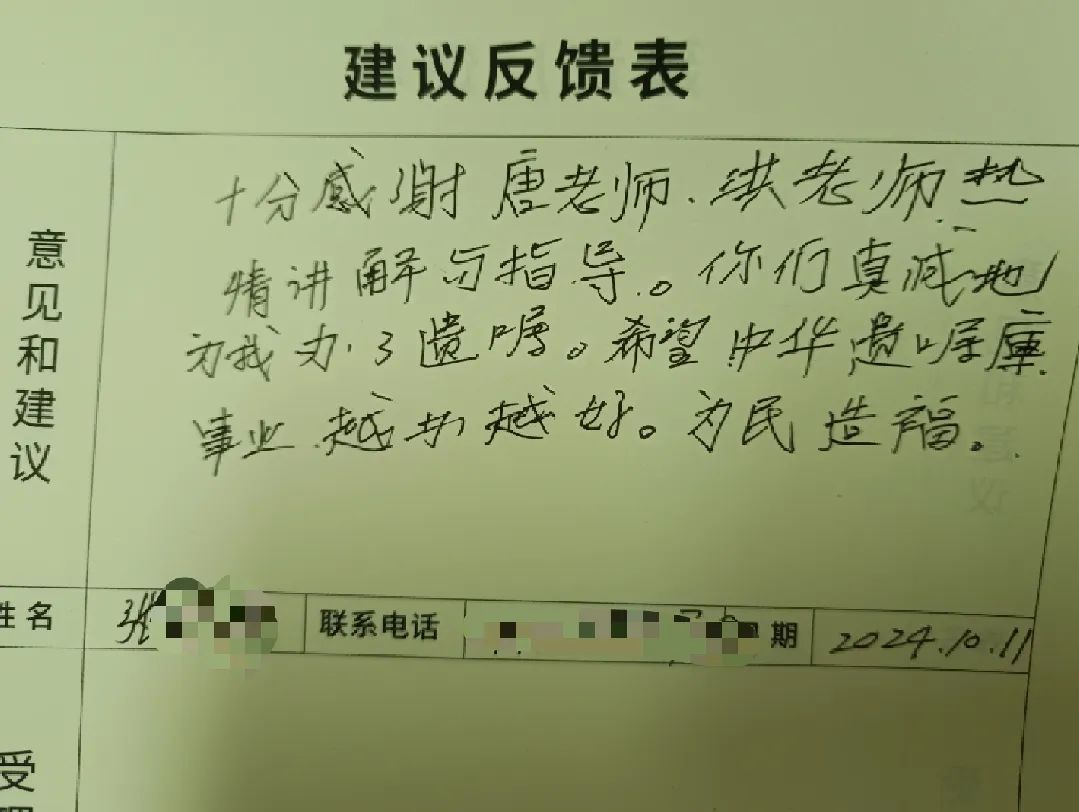 建议反馈表
意见和建议
十分感谢唐老师、洪老师热
情讲解与指导。你们真诚地
为我办了遗嘱。希望中华遗嘱库
事业越办越好。为民造福。
姓名 张
联系电话
期 2024.10.11
受理